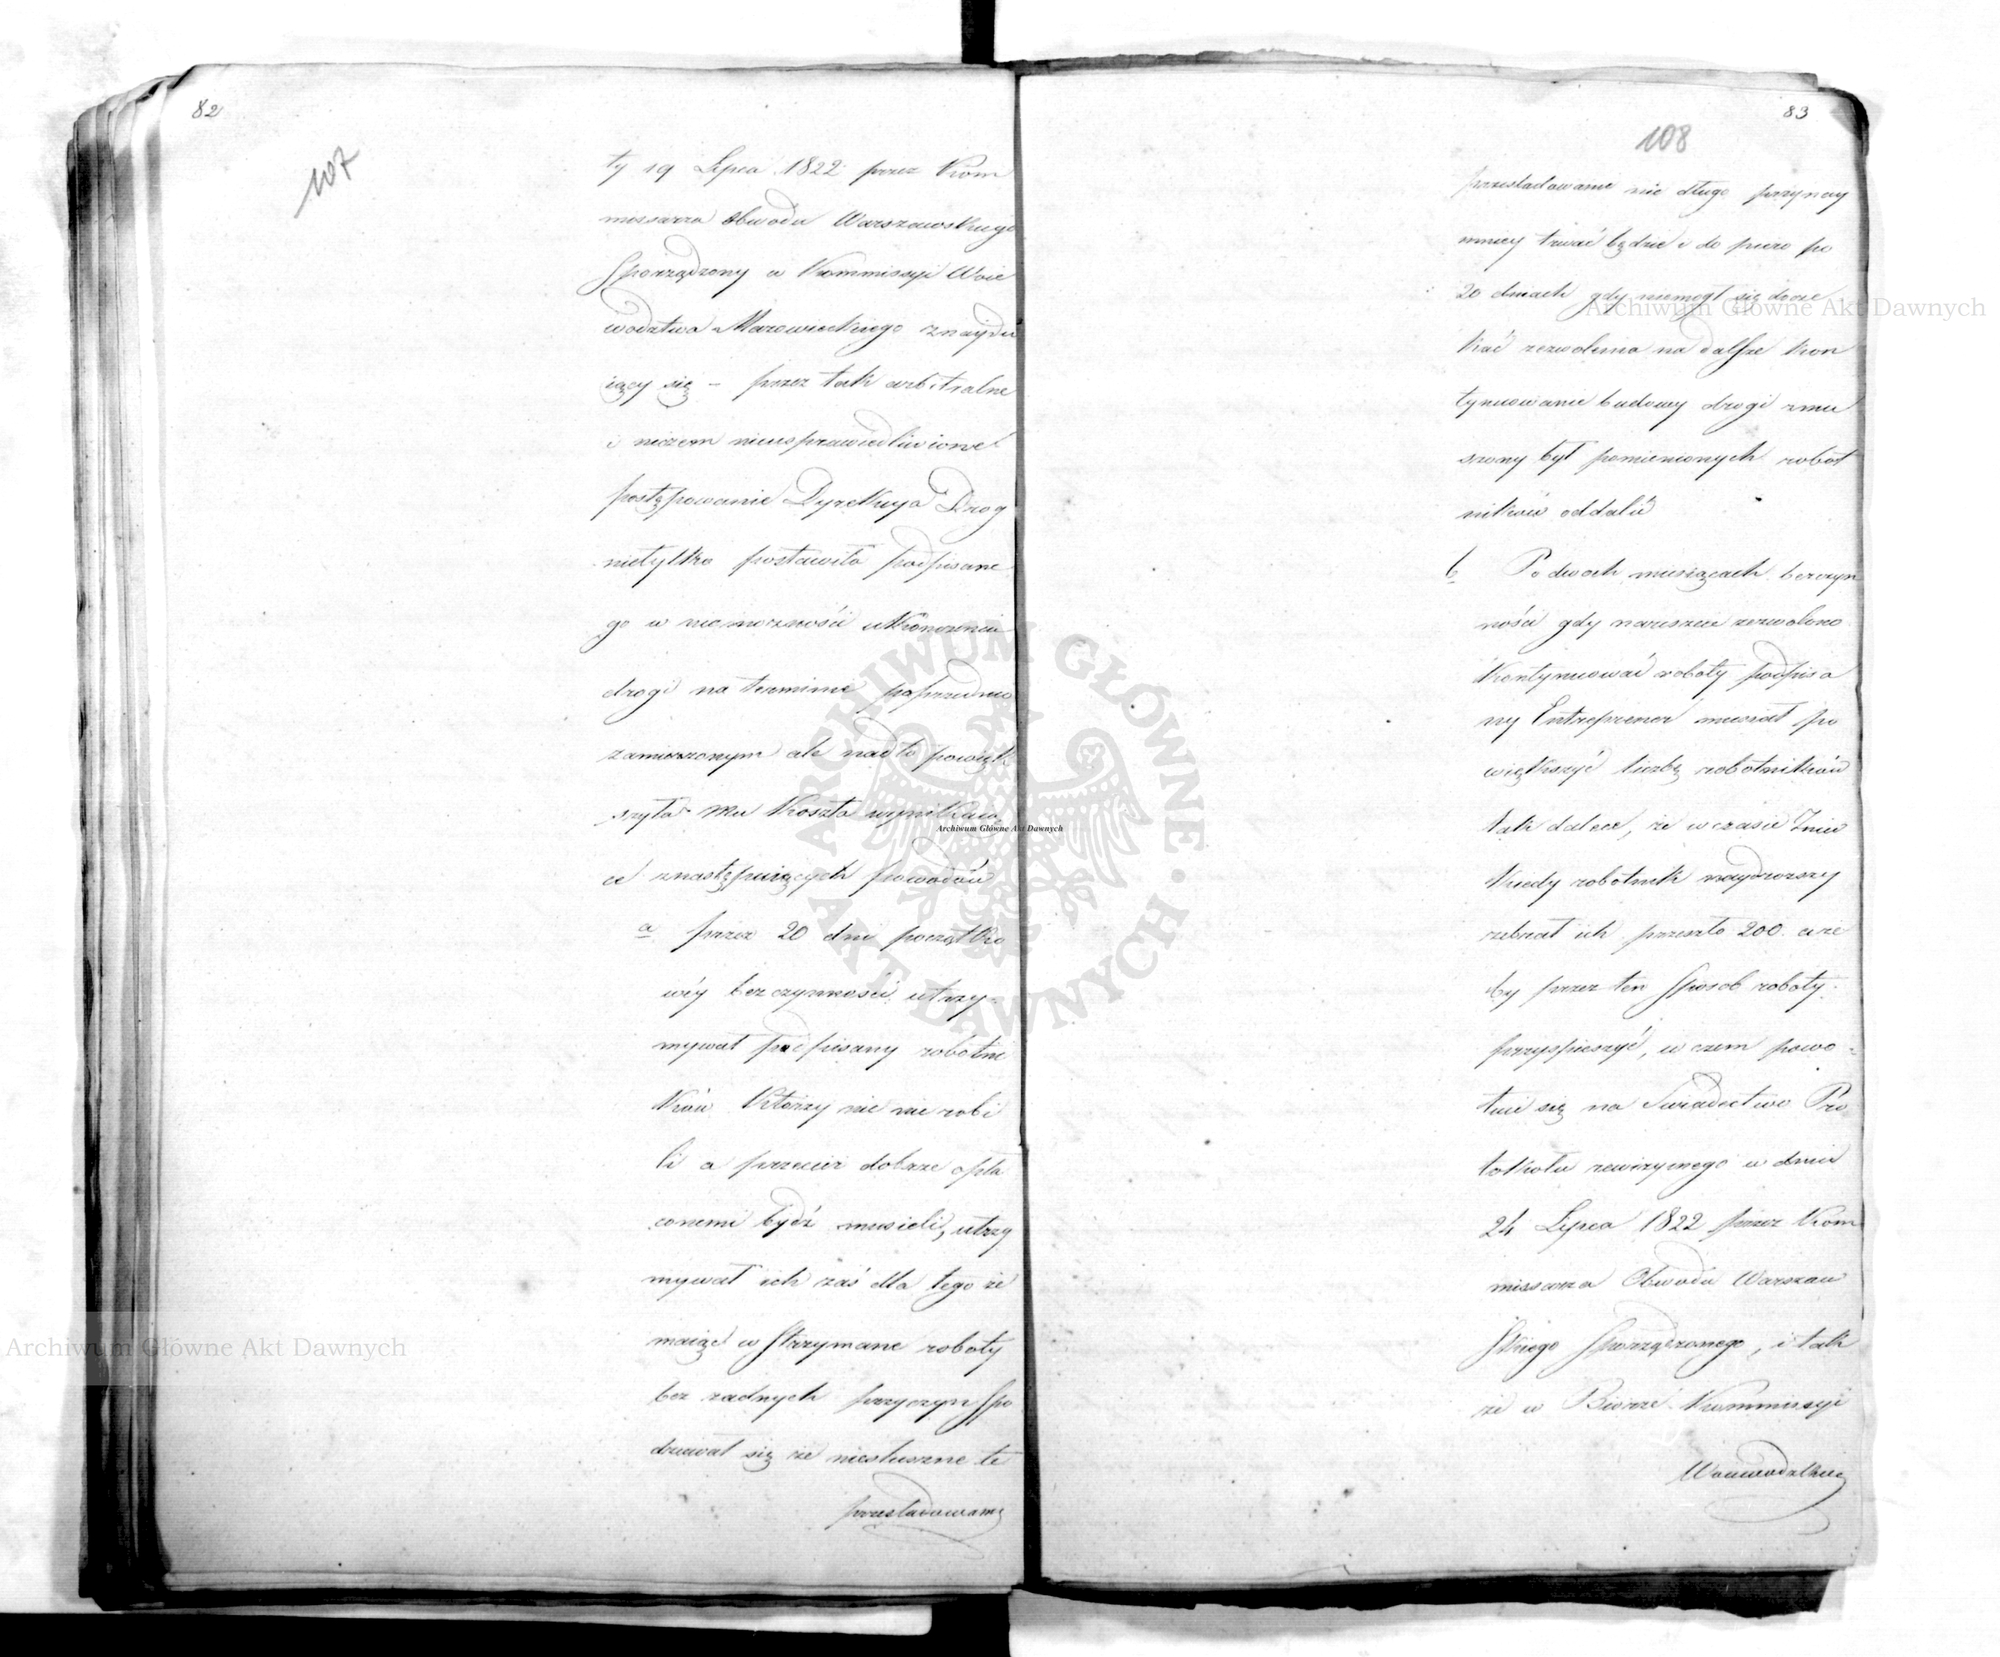 82
107
ty 19 Lipca 1822 przez Kom
missarza Obwodu Warszawskiego
Sporządzony a Kommissyi Woie
wodztwa Mazowieckiego znaydu
iący się – przez tak arbitralne
i niczem nieusprawiedliwione
postępowanie Dyrekcya Drog
nietylko postawiła podpisane
go w niemożności ukończenia
drogi na terminie poprzednio
zamierzonym ale nadto powięk
szyła mu koszta wynikaią
ce z następuiących powodów
a przez 20 dni początko
wéy bezczynności utrzy-
mywał podpisany robotni
ków którzy nic nie robi
li a przecież dobrze opła
conemi bydź musieli, utrzy
mywał ich zaś dla tego że
maiąc wstrzymane roboty
bez żadnych przyczyn spo
dziewał się że niesłuszne te
prześladowanie
83
108
prześladowanie nie długo przynay
mniey trwać będzie i do piero po
20 dniach gdy niemogł się docze
kać zezwolenia na dalsze kon
tynuowanie budowy drogi zmu
szony był pomienionych robot
ników oddalić
b Po dwoch miesiącach bezczyn
ności gdy nareszcie zezwolono
kontynuować roboty podpisa
ny Entreprener musiał po
większyć liczbę robotników
tak dalece, że w czasie żniw
kiedy robotnik naydroższy
zebrał ich przeszło 200. aże
by przez ten sposob roboty
przyspieszyć, w czem powo-
łuie się na Swiadectwo Pro
tokołu rewizyinego w dniu
24 Lipca 1822 przez Kom
missarza Obwodu Warszaw
skiego sporządzonego, i tak
że w Biorze Kommissyi
Woiewodzkiey
Archiwum Główne Akt Dawnych
Archiwum Główne Akt Dawnych
Archiwum Główne Akt Dawnych
ARCHIWUM GŁÓWNE AKT DAWNYCH